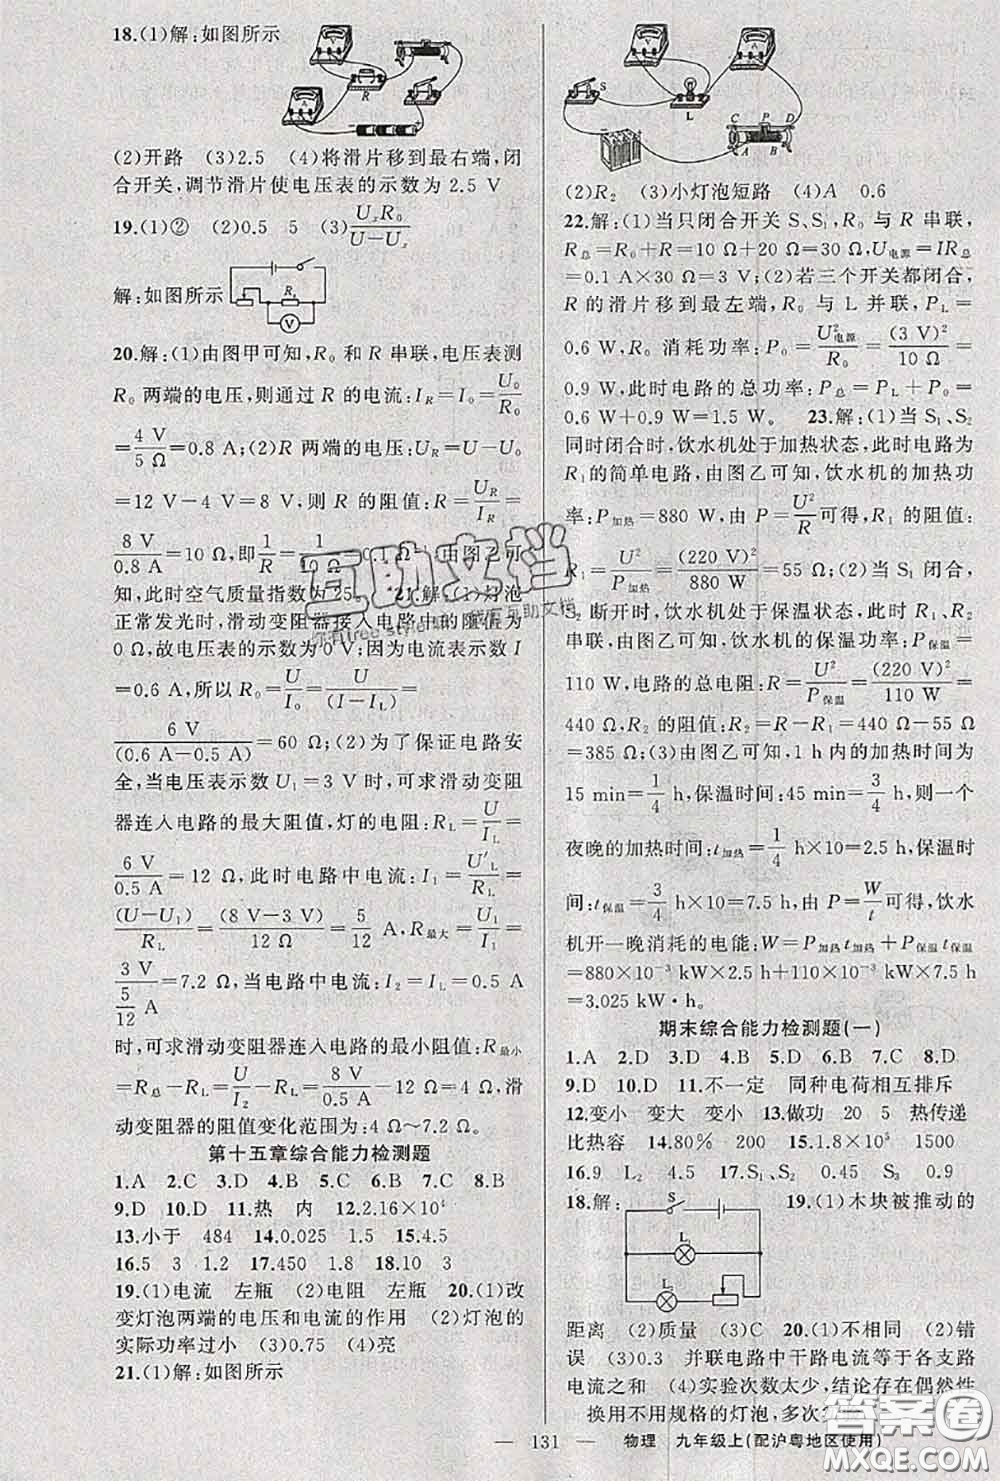 18.(1)解:如图所示
R
(2)开路 (3)2.5 (4)将滑片移到最右端,闭
合开关,调节滑片使电压表的示数为 2.5 V
19.(1)② (2)0.5 5 (3)UₓR₀/(U-Uₓ)
解:如图所示
Rₓ
V
20.解:(1)由图甲可知,R₀ 和 R 串联,电压表测
R₀ 两端的电压,则通过 R 的电流:I_R=I₀=U₀/R₀
=4 V/5 Ω=0.8 A;(2)R 两端的电压:U_R=U-U₀
=12 V-4 V=8 V,则 R 的阻值:R=U_R/I_R=
8 V/0.8 A=10 Ω,即1/R=1/10 0.1 由图乙可
知,此时空气质量指数为 25。 21.解:(1)灯泡
正常发光时,滑动变阻器接入电路中的阻值为
0 Ω,故电压表的示数为 0 V;因为电流表示数 I
=0.6 A,所以 R₀=U/I₀=U/(I-I_L)=
6 V/(0.6 A-0.5 A)=60 Ω;(2)为了保证电路安
全,当电压表示数 U₁=3 V 时,可求滑动变阻
器连入电路的最大阻值,灯的电阻:R_L=U/I_L=
6 V/0.5 A=12 Ω,此时电路中电流:I₁=U′_L/R_L=
(U-U₁)/R_L=(8 V-3 V)/12 Ω=5/12 A,R最大=U₁/I₁=
3 V/(5/12 A)=7.2 Ω,当电路中电流:I₂=I_L=0.5 A
时,可求滑动变阻器连入电路的最小阻值:R最小
=R总-R_L=U/I₂-R_L=8 V/0.5 A-12 Ω=4 Ω,滑
动变阻器的阻值变化范围为:4 Ω~7.2 Ω。
第十五章综合能力检测题
1.A 2.C 3.D 4.D 5.B 6.C 7.B 8.B
9.D 10.D 11.热 内 12.2.16×10⁴
13.小于 484 14.0.025 1.5 15.4.5
16.5 3 1.2 17.450 1.8 18.10 3
19.(1)电流 左瓶 (2)电阻 左瓶 20.(1)改
变灯泡两端的电压和电流的作用 (2)灯泡的
实际功率过小 (3)0.75 (4)亮
21.(1)解:如图所示
S L C P D A B
(2)R₂ (3)小灯泡短路 (4)A 0.6
22.解:(1)当只闭合开关 S、S₁,R₀ 与 R 串联,
R总=R₀+R=10 Ω+20 Ω=30 Ω,U电源=IR总
=0.1 A×30 Ω=3 V;(2)若三个开关都闭合,
R 的滑片移到最左端,R₀ 与 L 并联,P_L=
0.6 W,R₀ 消耗功率:P₀=U²电源/R₀=(3 V)²/10 Ω=
0.9 W,此时电路的总功率:P总=P_L+P₀=
0.6 W+0.9 W=1.5 W。 23.解:(1)当 S₁、S₂
同时闭合时,饮水机处于加热状态,此时电路为
R₁的简单电路,由图乙可知,饮水机的加热功
率:P加热=880 W,由 P=U²/R可得,R₁ 的阻值:
R₁=U²/P加热=(220 V)²/880 W=55 Ω;(2)当 S₁ 闭合,
S₂ 断开时,饮水机处于保温状态,此时 R₁、R₂
串联,由图乙可知,饮水机的保温功率:P保温=
110 W,电路的总电阻:R=U²/P保温=(220 V)²/110 W=
440 Ω,R₂ 的阻值:R₂=R-R₁=440 Ω-55 Ω
=385 Ω;(3)由图乙可知,1 h内的加热时间为
15 min=1/4 h,保温时间:45 min=3/4 h,则一个
夜晚的加热时间:t加热=1/4 h×10=2.5 h,保温时
间:t保温=3/4 h×10=7.5 h,由 P=W/t可得,饮水
机开一晚消耗的电能:W=P加热t加热+P保温t保温
=880×10⁻³ kW×2.5 h+110×10⁻³ kW×7.5 h
=3.025 kW·h。
期末综合能力检测题(一)
1.A 2.D 3.D 4.B 5.D 6.B 7.C 8.D
9.D 10.D 11.不一定 同种电荷相互排斥
12.变小 变大 变小 13.做功 20 5 热传递
比热容 14.80% 200 15.1.8×10⁵ 1500
16.9 L₂ 4.5 17.S₁、S₂ 0.45 S₃ 0.9
18.解: 19.(1)木块被推动的
S L₁ L₂
距离 (2)质量 (3)C 20.(1)不相同 (2)错
误 (3)0.3 并联电路中干路电流等于各支路
电流之和 (4)实验次数太少,结论存在偶然性
换用不用规格的灯泡,多次
— 131 — 物理 九年级上(配沪粤地区使用)
互助文档
答案圈
MXQE.COM